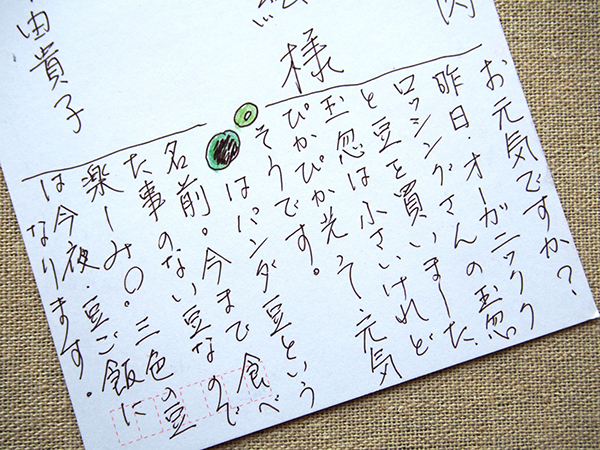 様
由貴子
お元気ですか?
昨日・オーガニックク
ロッシングさんの玉忽
と豆を買いました。
玉忽は小さいけれど
ぴかぴか光って、元気
そうです。
はパンダ豆という
名前。今まで食べ
た事のない豆なので
楽しみ〇。三色の豆
は今夜・豆ご飯に
なります。